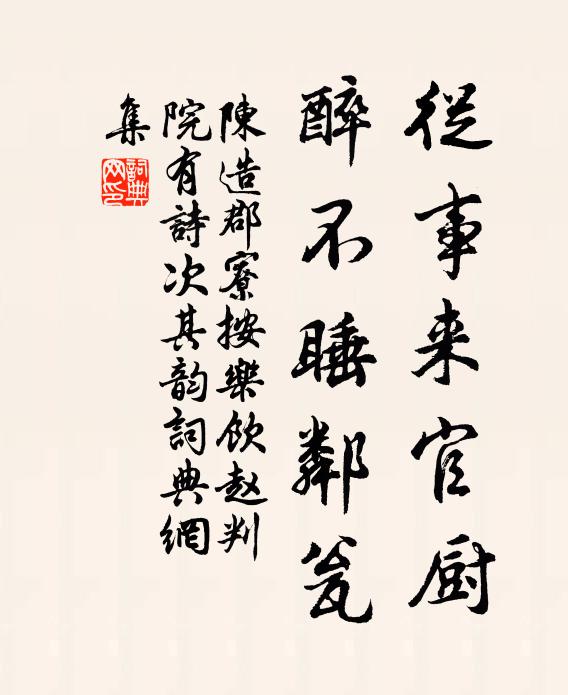 從事来官厨
醉不睡鄰瓮
陳造郡寮按樂飲赵判
院有詩次其韵詞典網
集
詞典網印